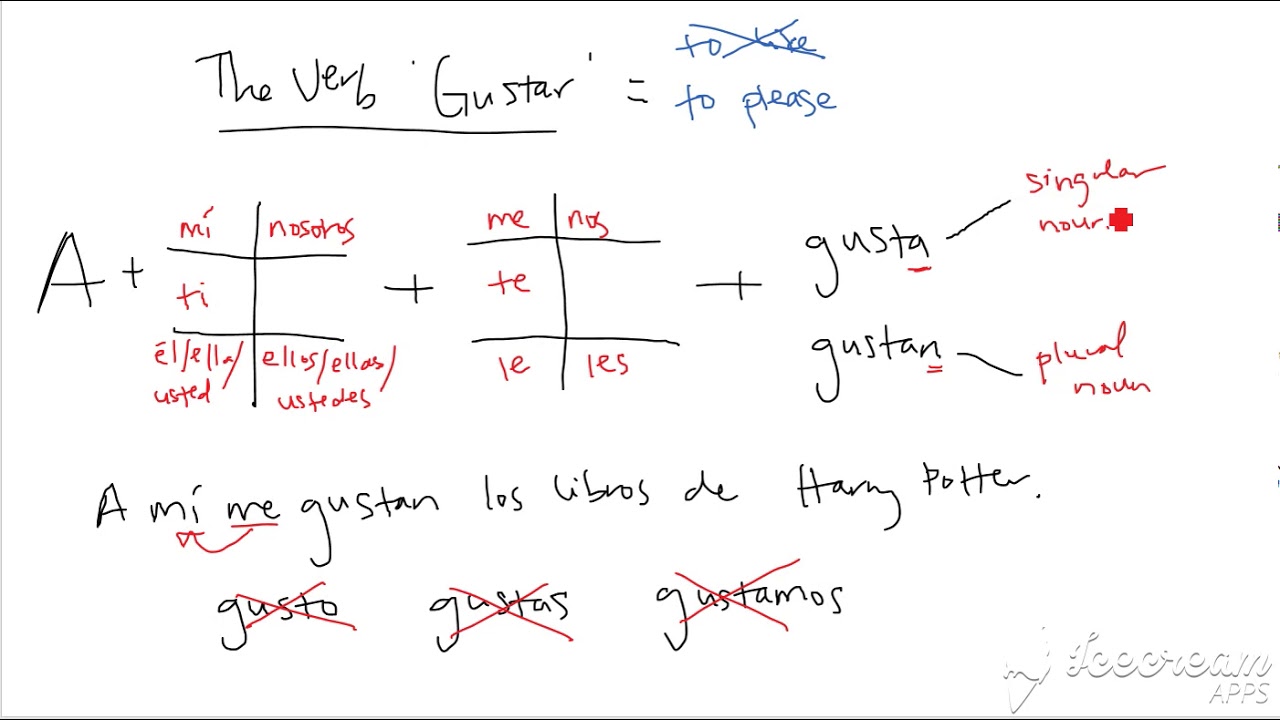 The Verb 'Gustar' = to like
to please
A + mí nosotros + me nos + gusta singular noun
ti te
él/ella/usted ellos/ellas/ustedes le les gustan plural noun
A mí me gustan los libros de Harry Potter.
gusto gustas gustamos
Icecream
APPS